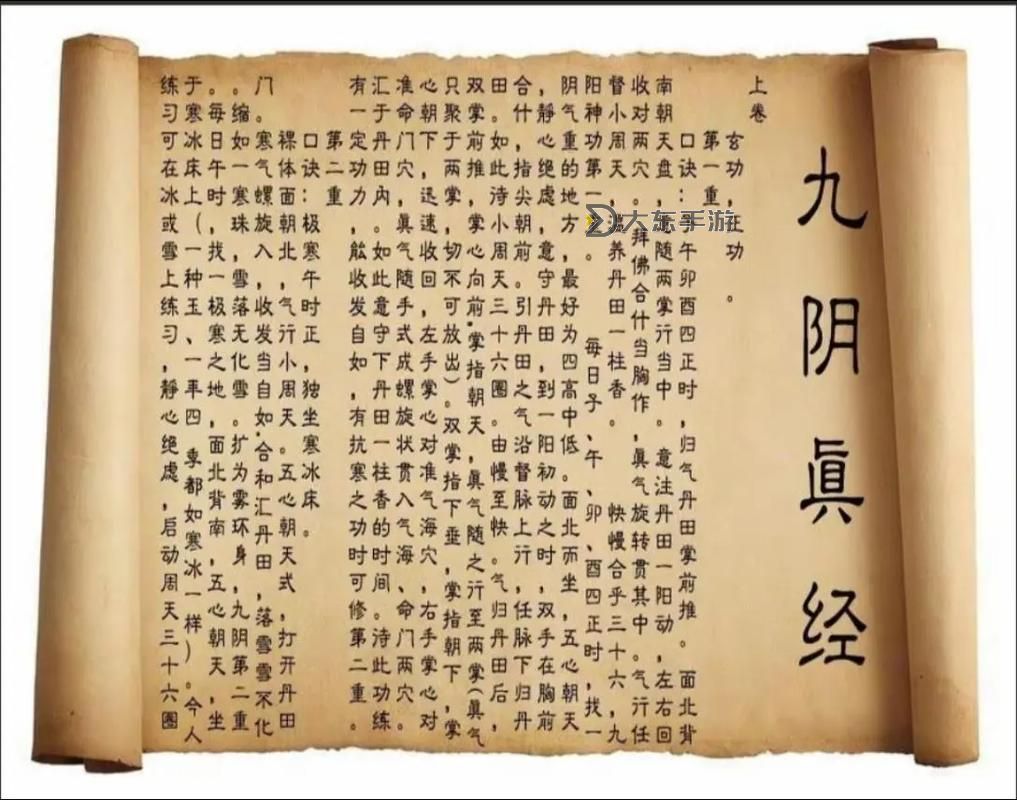 九阴眞经
上卷
玄功,正功。
第一重
口诀:子午卯酉四正时,归气丹田掌前推。面北背
南朝天盘,意随两掌行当中。意注丹田一阳动,左右回
收对两穴。拜佛合什当胸作,眞气旋转贯其中。气行任
督小周天,温养丹田一柱香。快慢合乎三十六,九
阳神功第一。每日子、午、卯、酉四正时,找一
阴气重的地方,最好为四高中低。面北而坐,五心朝天
,静心绝虑,意守丹田,到一阳初动之时,双手在胸前
合什,指尖朝前。引丹田之气沿督脉上行,任脉下归丹
田。如此待小周天三十六圈。由慢至快。气归丹田后,
双掌前推,掌心向前,掌指朝天,眞气随之行至两掌(眞气
只聚于两掌,切不可放出)。双掌指下垂,掌指朝下,掌
心朝下,迅速收回,左手掌心对准气海穴,右手掌心对
准命门穴,眞气随手式成螺旋状贯入气海、命门两穴。
汇于丹田内。如此意守下丹田一柱香的时间。待此功练
有一定功力,能收发自如,有抗寒之功时可修第二重。
第二重
口诀:极寒午时正,独坐寒冰床。
裸体面朝北,气行小周天。五心朝天式,打开丹田
门寒气螺旋入,收发当自如.合和汇丹田,落雪雪不化
。缩如一寒珠,雪落无化雪。扩为雾环身,九阴第二重
。每日午时,找一极寒之地,面北背南,五心朝天,坐
于寒冰床上(一种玉、一年四季都如寒冰一样)。今人
练习可在冰或雪上练习,静心绝虑,启动周天三十六圈
大东手游